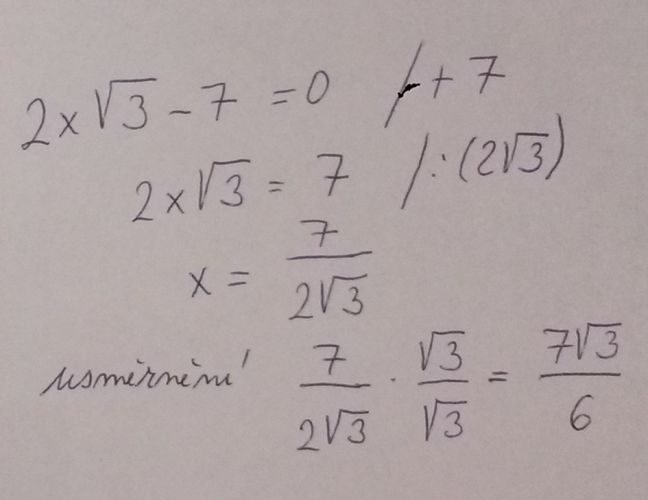 2x√3 - 7 = 0 /+ 7
2x√3 = 7 /:(2√3)
x = 7/(2√3)
usměrnění 7/(2√3) · √3/√3 = 7√3/6